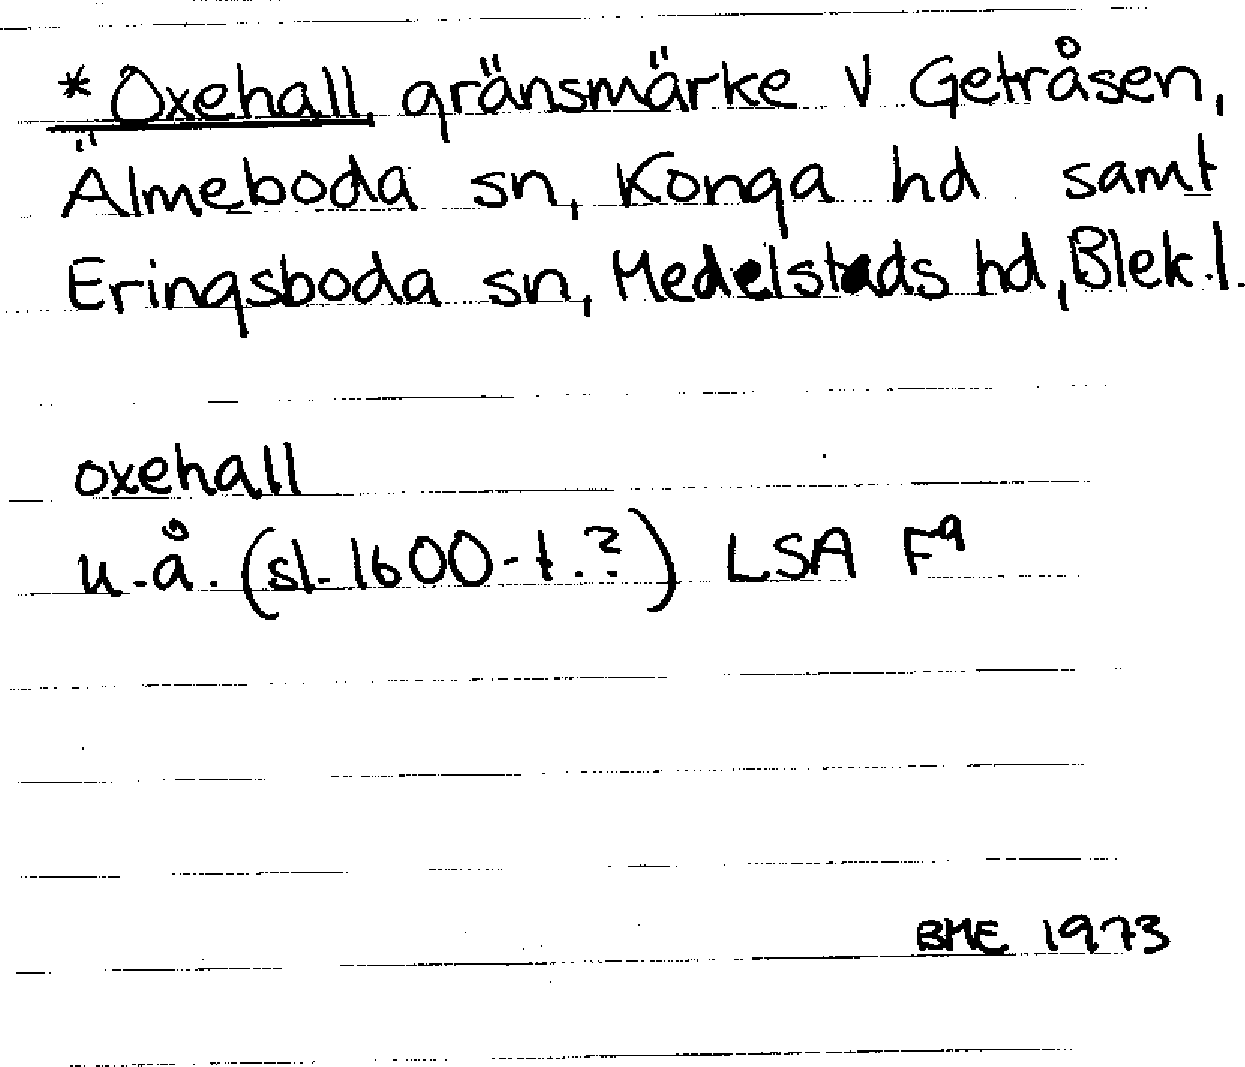 *Oxehall gränsmärke V Getråsen,
Älmeboda sn, Konga hd samt
Eringsboda sn, Medelstads hd, Blek.l.
oxehall
u.å. (sl. 1600-t.?) LSA Fᵃ
BME 1973